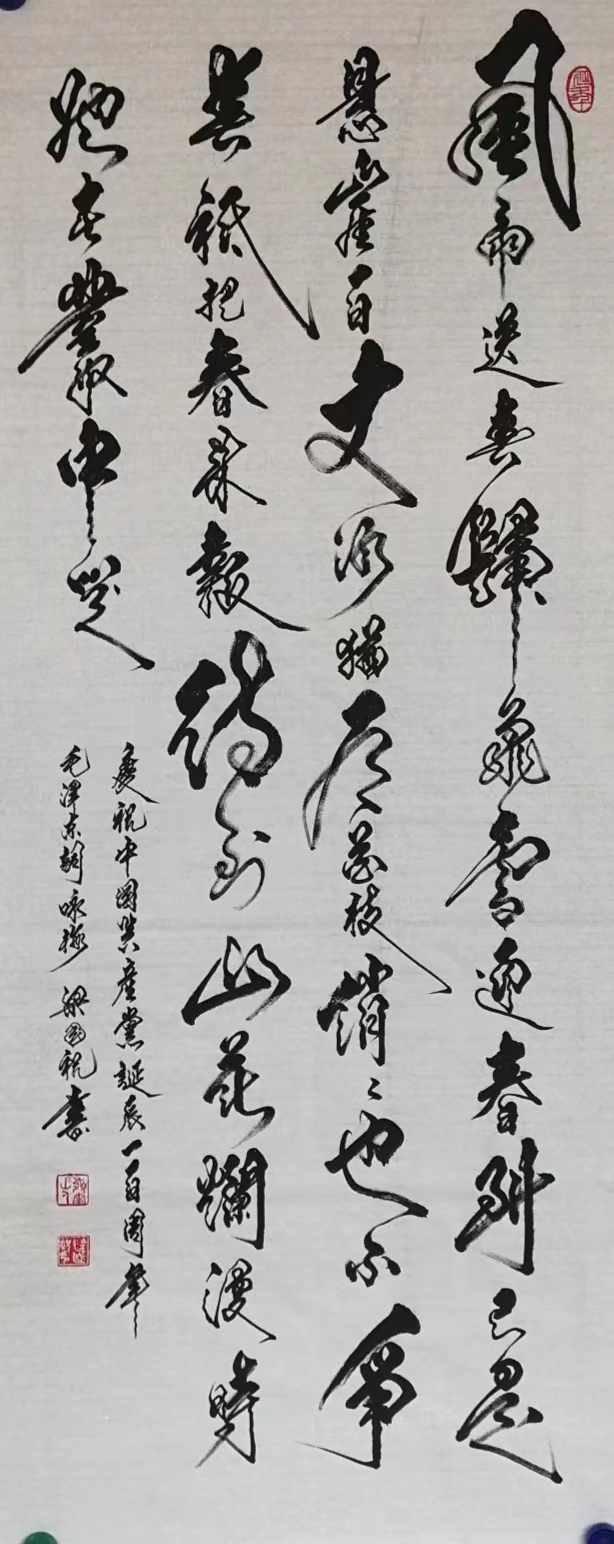 風雨送春歸飛雪迎春到已是
悬崖百丈冰猶有花枝俏〻也不爭
春祇把春来報待到山花爛漫時
她在叢中笑
慶祝中國共產黨誕辰一百周年
毛澤东詞咏梅 梁國祝書